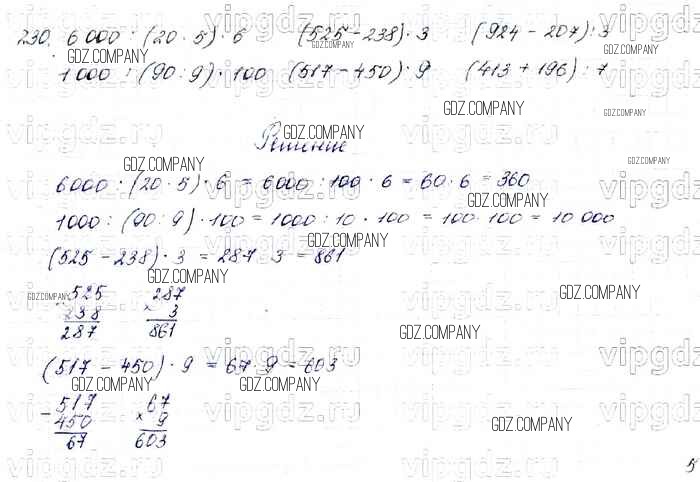 230. 6000 : (20 · 5) · 6 (525 – 238) · 3 (924 – 207) : 3
1000 : (90 : 9) · 100 (517 – 450) · 9 (413 + 196) : 7
Решение
6000 : (20 · 5) · 6 = 6000 : 100 · 6 = 60 · 6 = 360
1000 : (90 : 9) · 100 = 1000 : 10 · 100 = 100 · 100 = 10 000
(525 – 238) · 3 = 287 · 3 = 861
525 287
238 × 3
287 861
(517 – 450) · 9 = 67 · 9 = 603
– 517 67
450 × 9
67 603
5
GDZ.COMPANY
vipgdz.ru